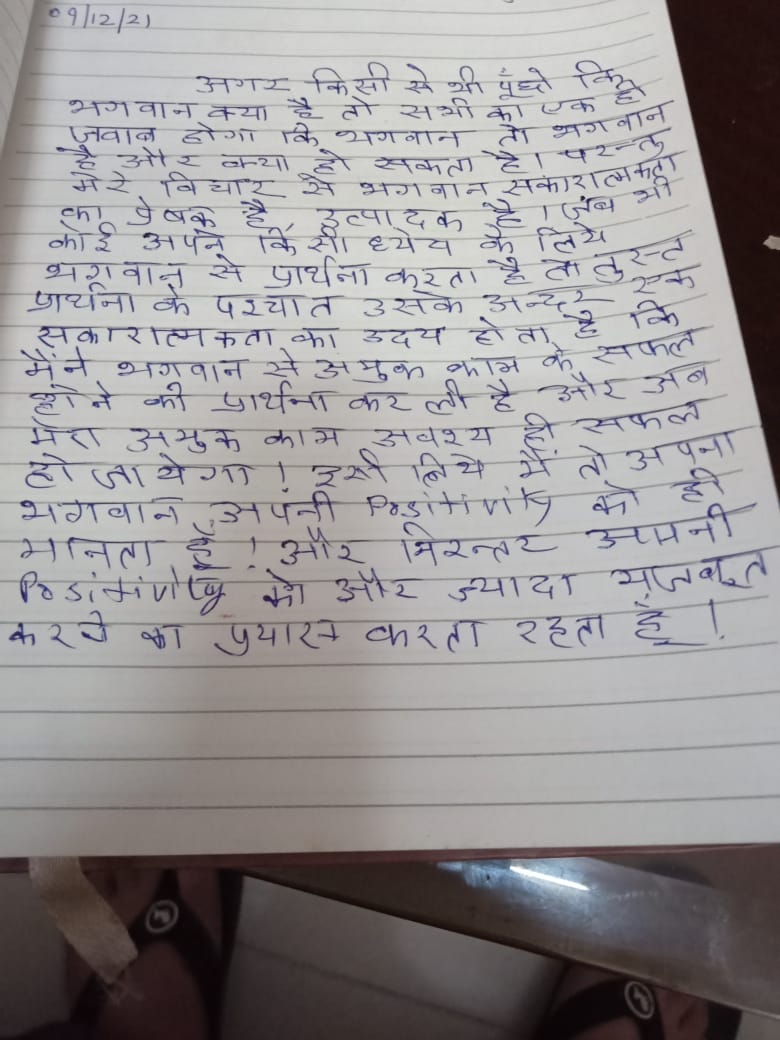 09/12/21
अगर किसी से भी पूंछो कि
भगवान क्या है तो सभी का एक ही
जवाब होगा कि भगवान तो भगवान
है और क्या हो सकता है। परन्तु
मेरे विचार से भगवान सकारात्मकता
का प्रेषक है, उत्पादक है। जब भी
कोई अपने किसी ध्येय के लिये
भगवान से प्रार्थना करता है तो तुरन्त
प्रार्थना के पश्चात उसके अन्दर एक
सकारात्मकता का उदय होता है कि
मैंने भगवान से अमुक काम के सफल
होने की प्रार्थना कर ली है और अब
मेरा अमुक काम अवश्य ही सफल
हो जायेगा! इसी लिये मैं तो अपना
भगवान, अपनी Positivity को ही
मानता हूँ! और निरन्तर अपनी
Positivity को और ज्यादा मजबूत
करने का प्रयास करता रहता हूँ!